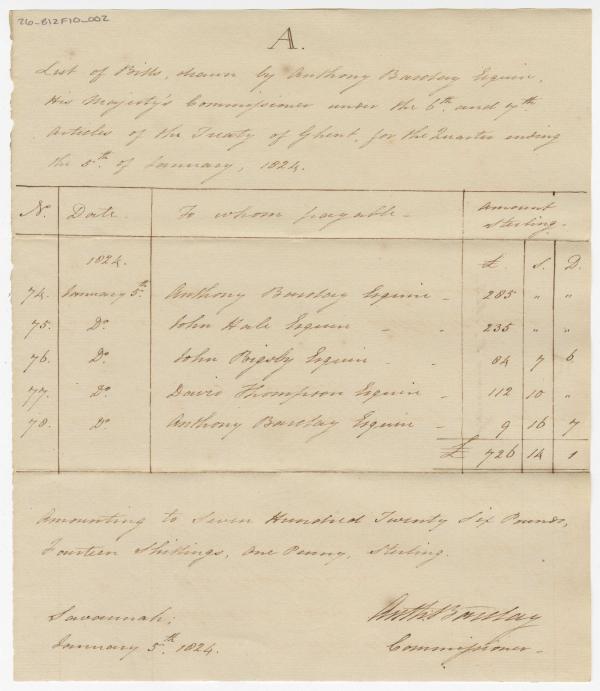 26-B12F10_002
A.
List of Bills, drawn by Anthony Barclay Esquire,
His Majesty's Commissioner under the 6th and 7th
Articles of the Treaty of Ghent, for the Quarter ending
the 5th of January, 1824.
No. Date. To whom payable - Amount Sterling.
1824. £ S. D.
74. January 5th Anthony Barclay Esquire - 285 " "
75. Do John Hale Esquire - - 235 " "
76. Do John Bigsby Esquire - - 84 7 6
77. Do David Thompson Esquire - 112 10 "
78. Do Anthony Barclay Esquire - 9 16 7
£ 726 14 1
Amounting to Seven Hundred Twenty Six Pounds,
Fourteen Shillings, One Penny, Sterling.
Savannah;
January 5th 1824.
Anth: Barclay
Commissioner -